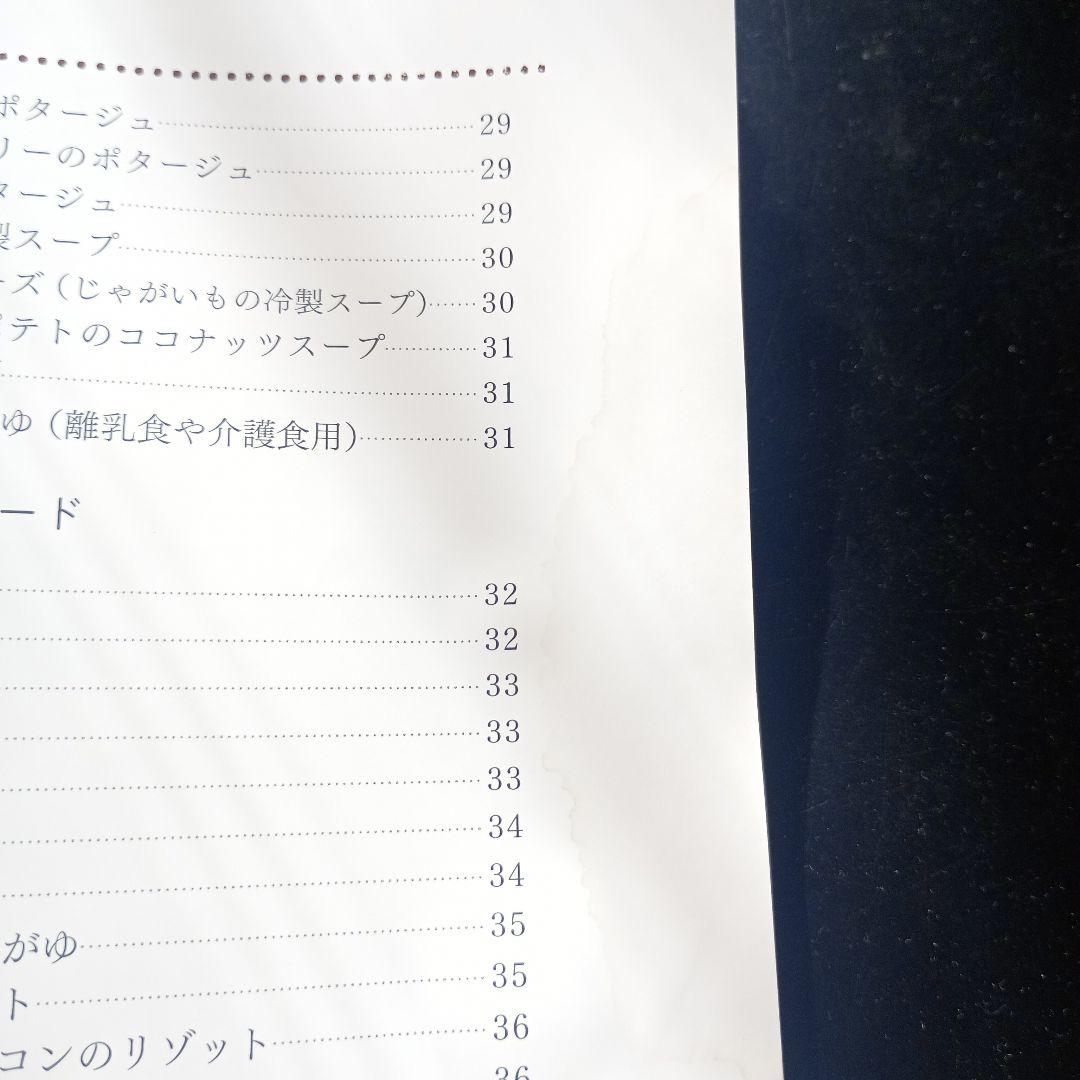 ポタージュ 29
リーのポタージュ 29
タージュ 29
製スープ 30
ーズ（じゃがいもの冷製スープ） 30
ポテトのココナッツスープ 31
31
ゆ（離乳食や介護食用） 31
ード
32
32
33
33
33
34
34
がゆ 35
ト 35
コンのリゾット 36
36